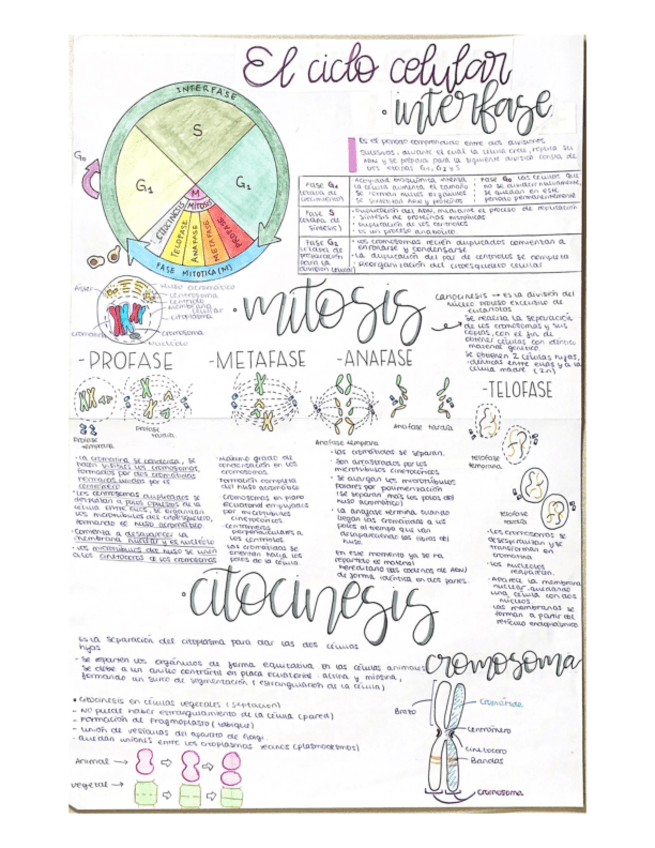 El ciclo celular
INTERFASE
S
G1
G2
G0
M
MITOSIS
CITOCINESIS
TELOFASE
ANAFASE
METAFASE
PROFASE
FASE MITOTICA (M)
·interfase
Es el periodo comprendido entre dos divisiones
sucesivas, durante el cual la célula crece, replica su
ADN y se prepara para la siguiente división consta de
tres etapas G1, G2 y S
Fase G1
(etapa de
crecimiento)
la célula aumenta el tamaño
se forman nuevos orgánulos
se sintetizan ARN y proteínas
Fase G0 las células que
no se dividen nuevamente,
se quedan en este
periodo permanentemente
Fase S
(etapa de
síntesis)
·Duplicación del ADN, mediante el proceso de replicación
·síntesis de proteínas histónicas
·duplicación de los centriolos
·es un proceso anabólico
Fase G2
(etapa de
preparación
para la
división celular)
·los cromosomas recién duplicados comienzan a
condensarse
·la duplicación del par de centriolos se completa
·Reorganización del citoesqueleto celular
Aster
huso acromático
centrosoma
centriolo
membrana
celular
citoplasma
cromosoma
nucléolo
·mitosis
cariocinesis → es la división del
núcleo proceso exclusivo de
eucariotas
se realiza la separación
de los cromosomas y sus
copias, con el fin de
obtener células con idéntico
material genético.
se obtienen 2 células hijas,
idénticas entre ellas y a la
célula madre (2n)
-PROFASE
-METAFASE
-ANAFASE
-TELOFASE
Profase
temprana
Profase
tardía
Anafase temprana
Anafase tardía
telofase
temprana
telofase
tardía
·la cromatina se condensa, se
hacen visibles los cromosomas,
formados por dos cromátidas
hermanas unidas por el
centrómero
·los centrosomas duplicados se
desplazan a polos opuestos de la
célula entre ellos, se organizan
los microtúbulos del citoesqueleto,
formando el huso acromático.
·comienza a desaparecer la
membrana nuclear y el nucléolo
·los microtúbulos del huso se unen
a los cinetocoros de los cromosomas
·máximo grado de
condensación en los
cromosomas
·formación completa
del huso acromático
·cromosomas en plano
ecuatorial empujados
por microtúbulos
cinetocóricos
·centrómeros
perpendiculares a
los centriolos
las cromátidas se
orientan hacia los
polos de la célula.
·las cromátidas se separan.
·son arrastradas por los
microtúbulos cinetocóricos
·se alargan los microtúbulos
polares por polimerización
(se separan más los polos del
huso acromático)
·la anafase termina cuando
llegan las cromátidas a los
polos al tiempo que van
desapareciendo las fibras del
huso.
en este momento ya se ha
repartido el material
hereditario (las cadenas de ADN)
de forma idéntica en dos partes.
·los cromosomas se
desespiralizan y se
transforman en
cromatina
·los nucléolos
reaparecen.
·Aparece la membrana
nuclear, quedando
una célula con dos
núcleos
las membranas se
forman a partir del
retículo endoplasmático
·citocinesis
Es la separación del citoplasma para dar las dos células
hijas
-Se reparten los orgánulos de forma equitativa en las células animales
se debe a un anillo contráctil en placa ecuatorial: actina y miosina,
formando un surco de segmentación (estrangulación de la célula)
• citocinesis en células vegetales (septación)
- no puede haber estrangulamiento de la célula (pared)
- formación de fragmoplasto (tabique)
- unión de vesículas del aparato de Golgi
- quedan uniones entre los citoplasmas vecinos (plasmodesmos)
Animal →
vegetal →
cromosoma
Brazo
Cromátida
centrómero
cinetocoro
Bandas
cromosoma